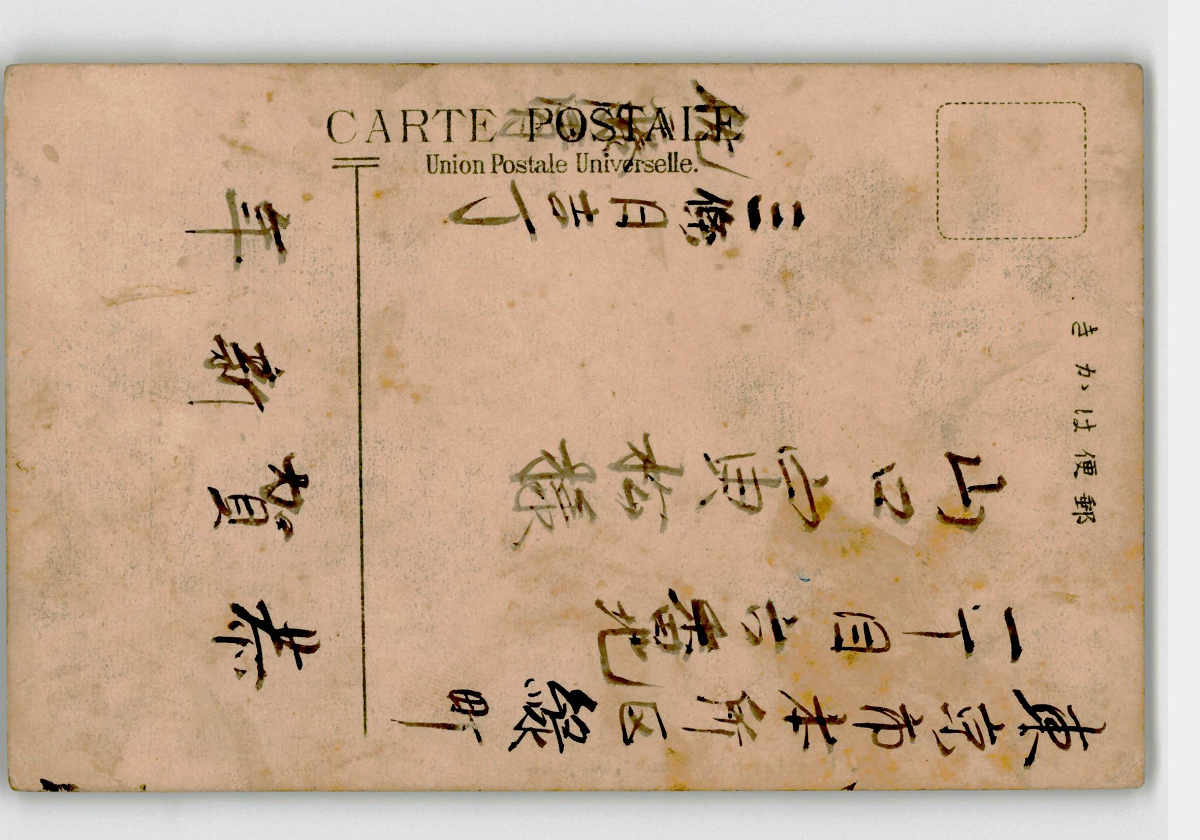 CARTE POSTALE
Union Postale Universelle.
郵便はかき
東京市本所区緑町
一丁目六番地
山口寅松様
恭賀新年